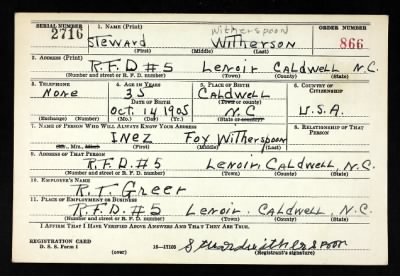 SERIAL NUMBER 1. NAME (Print) ORDER NUMBER
Witherspoon
2716 Steward Witherson 866
(First) (Middle) (Last)
2. ADDRESS (Print)
R.F.D #5 Lenoir Caldwell N.C.
(Number and street or R. F. D. number) (Town) (County) (State)
3. TELEPHONE 4. AGE IN YEARS 5. PLACE OF BIRTH 6. COUNTRY OF CITIZENSHIP
None 35 Caldwell
DATE OF BIRTH (Town or county)
Oct. 14 1905 N.C U.S.A.
(Exchange) (Number) (Mo.) (Day) (Yr.) (State or country)
7. NAME OF PERSON WHO WILL ALWAYS KNOW YOUR ADDRESS 8. RELATIONSHIP OF THAT PERSON
Inez Foy Witherspoon
(Mr., Mrs., Miss) (First) (Middle) (Last)
9. ADDRESS OF THAT PERSON
R.F.D. #5 Lenoir, Caldwell, N.C.
(Number and street or R. F. D. number) (Town) (County) (State)
10. EMPLOYER'S NAME
R.T. Greer
11. PLACE OF EMPLOYMENT OR BUSINESS
R.F.D. #5 Lenoir, Caldwell, N.C.
(Number and street or R. F. D. number) (Town) (County) (State)
I AFFIRM THAT I HAVE VERIFIED ABOVE ANSWERS AND THAT THEY ARE TRUE.
REGISTRATION CARD
D. S. S. Form 1 (over) 16—17105 Steward witherspoon
(Registrant's signature)